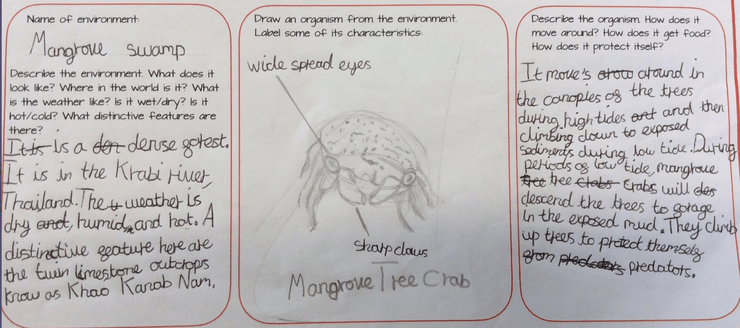 Name of environment:
Mangrove swamp
Describe the environment. What does it
look like? Where in the world is it? What
is the weather like? Is it wet/dry? Is it
hot/cold? What distinctive features are
there?
It is Is a den dense forest.
It is in the Krabi river,
Thailand. The weather is
dry and, humid, and hot. A
distinctive feature here are
the twin limestone outcrops
know as Khao Kanab Nam.
Draw an organism from the environment.
Label some of its characteristics.
wide spread eyes
sharp claws
Mangrove Tree Crab
Describe the organism. How does it
move around? How does it get food?
How does it protect itself?
It move's arow around in
the canopies of the trees
during high tides ant and then
climbing down to exposed
sediments during low tide. During
periods of low tide, mangrove
tree tree crabs crabs will des
descend the trees to forage
in the exposed mud. They climb
up trees to protect themself
from predators predators.